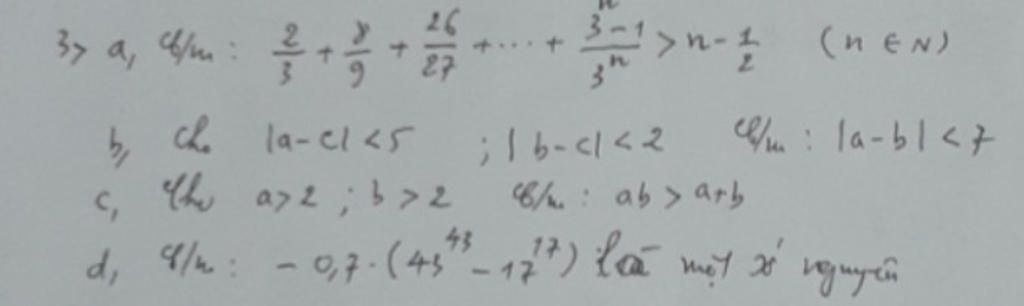 3> a, C/m : 2/3 + 8/9 + 26/27 + ... + (3^n - 1)/3^n > n - 1/2 (n ∈ N)
b, Cho |a-c| < 5 ; |b-c| < 2 C/m : |a-b| < 7
c, Cho a > 2 ; b > 2 C/m : ab > a+b
d, C/m : - 0,7 . (43^43 - 17^17) là một số nguyên